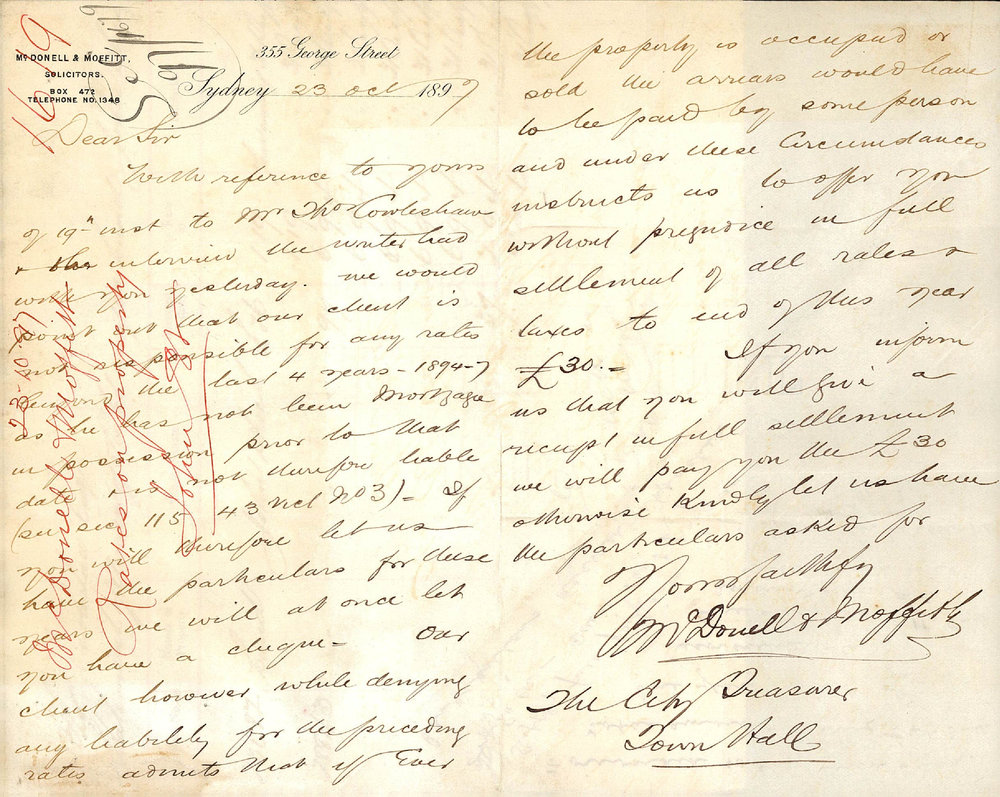 1619
McDONELL & MOFFITT,
SOLICITORS.
BOX 472
TELEPHONE No. 1348
355 George Street
Sydney 23 Oct 1897
Dear Sir
With reference to yours
of 19th inst to Mr Thos Cowlishaw
& the interview the writer had
with you yesterday. We would
point out that our client is
not responsible for any rates
beyond the last 4 years - 1894-7
as he has not been Mortgagee
in possession prior to that
date & is not therefore liable
(see sec 115 43 Vict No 3) - If
you will therefore let us
have the particulars for these
years we will at once let
you have a cheque - Our
client however while denying
any liability for the preceding
rates admits that if Ever
the property is occupied or
sold the arrears would have
to be paid by some person
and under these Circumstances
instructs us to offer you
without prejudice in full
settlement of all rates &
taxes to end of this year
£30.- If you inform
us that you will give a
receipt in full settlement
we will pay you the £30
otherwise Kindly let us have
the particulars asked for
Yours faithfy
McDonell & Moffitt
The City Treasurer
Town Hall
23.10.97
McDonell & Moffitt
Rates on property
John St